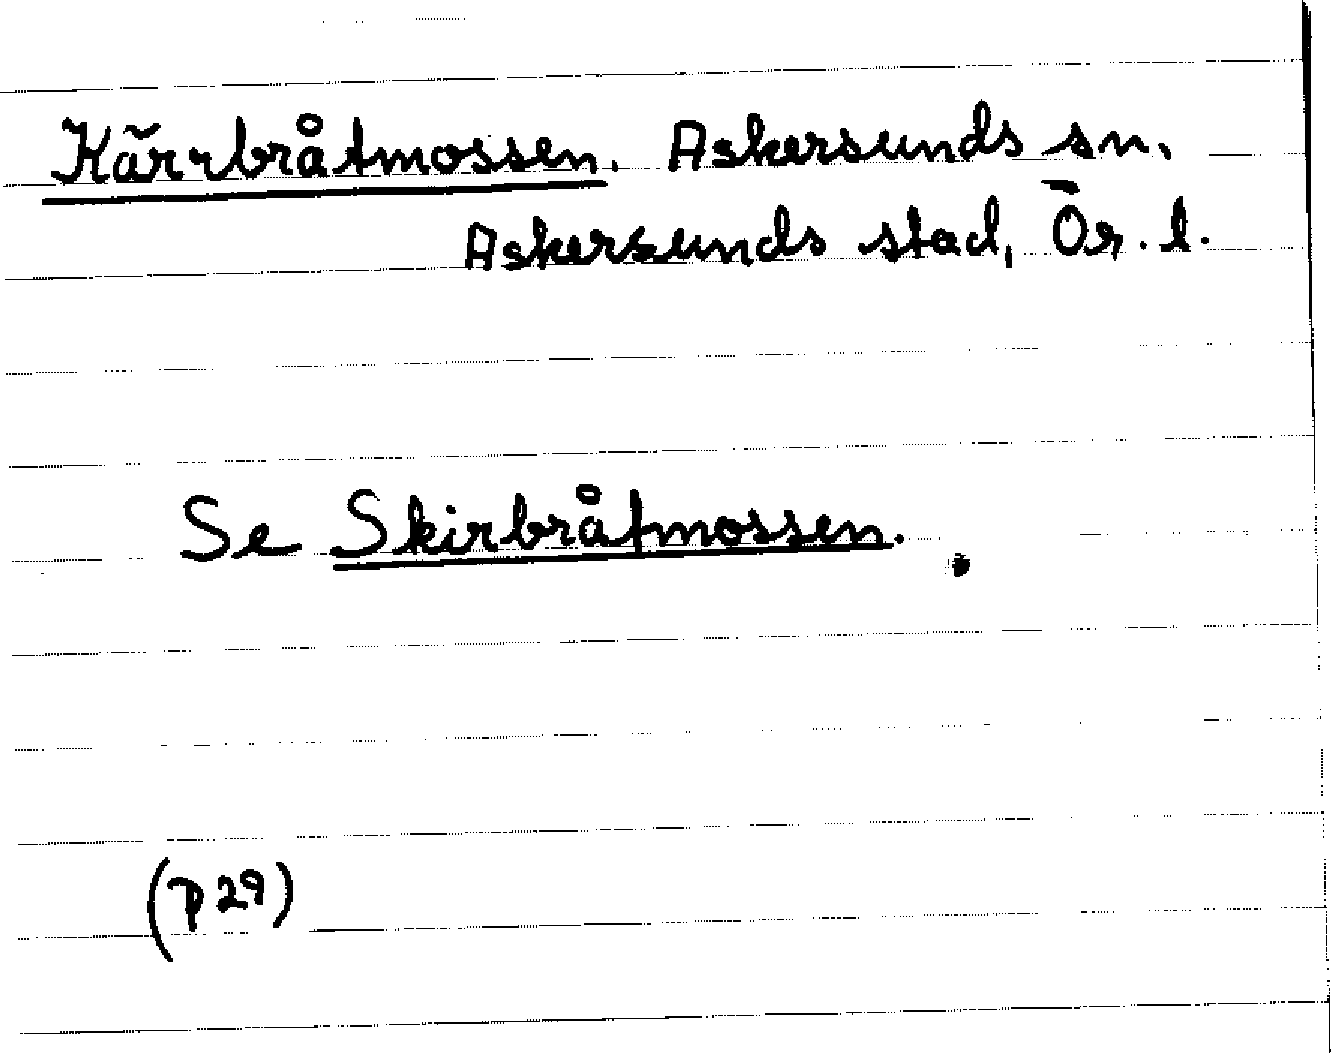 Kärrbråtmossen. Askersunds sn.
Askersunds stad, Ör. l.
Se Skirbråtmossen.
(p 29)